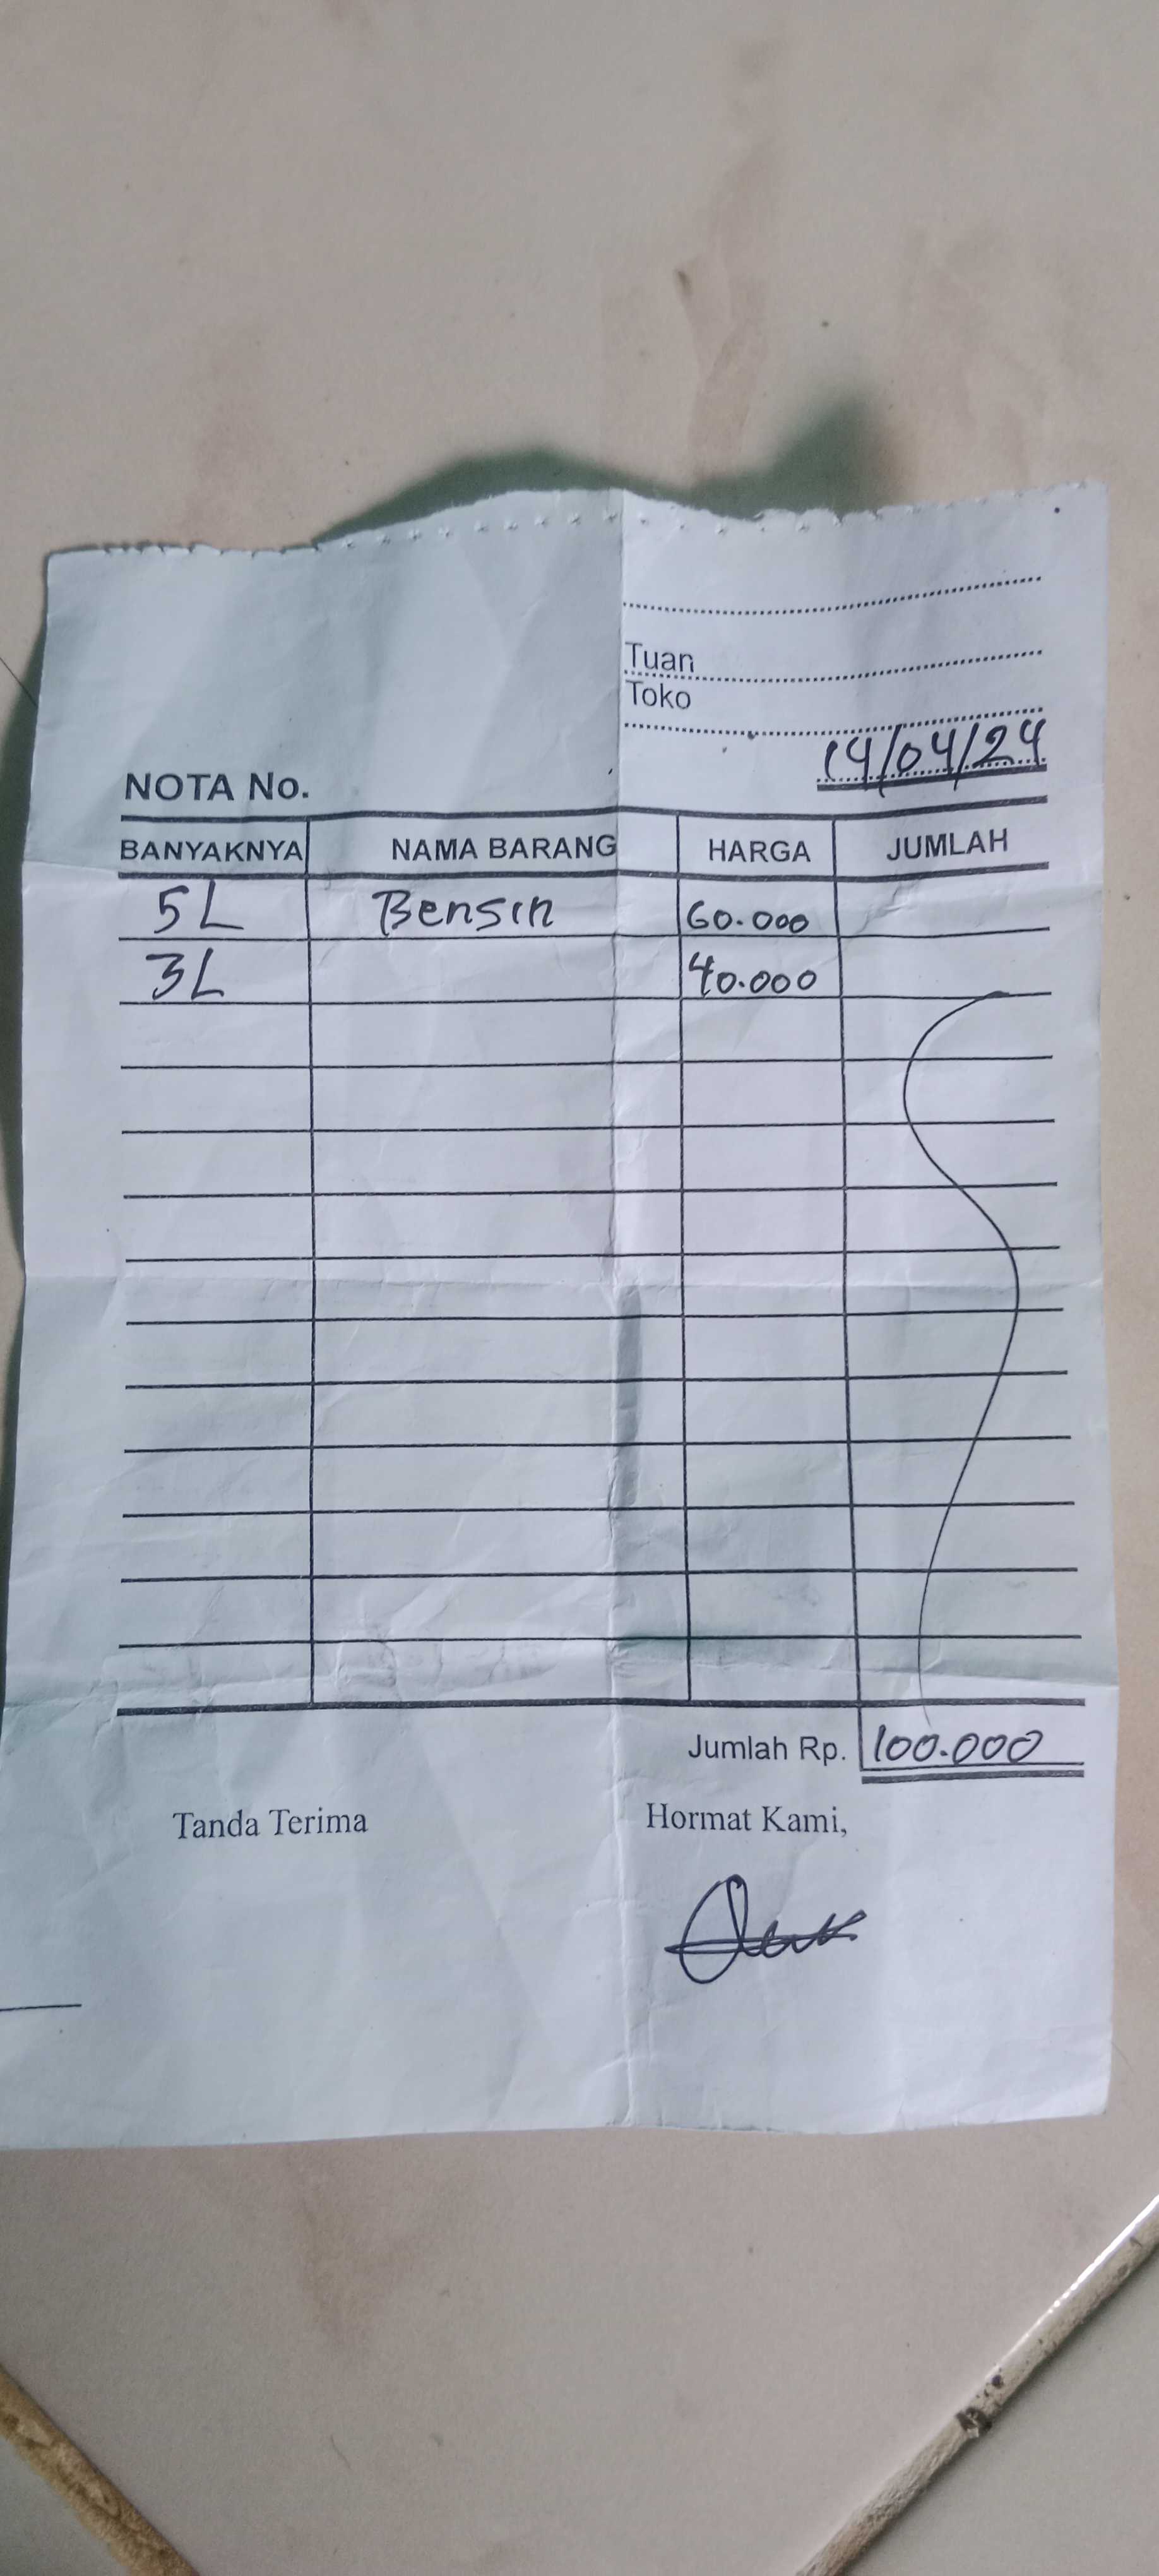 Tuan
Toko
14/04/24
NOTA No.
BANYAKNYA NAMA BARANG HARGA JUMLAH
5L Bensin 60.000
3L 40.000
Jumlah Rp. 100.000
Tanda Terima Hormat Kami,